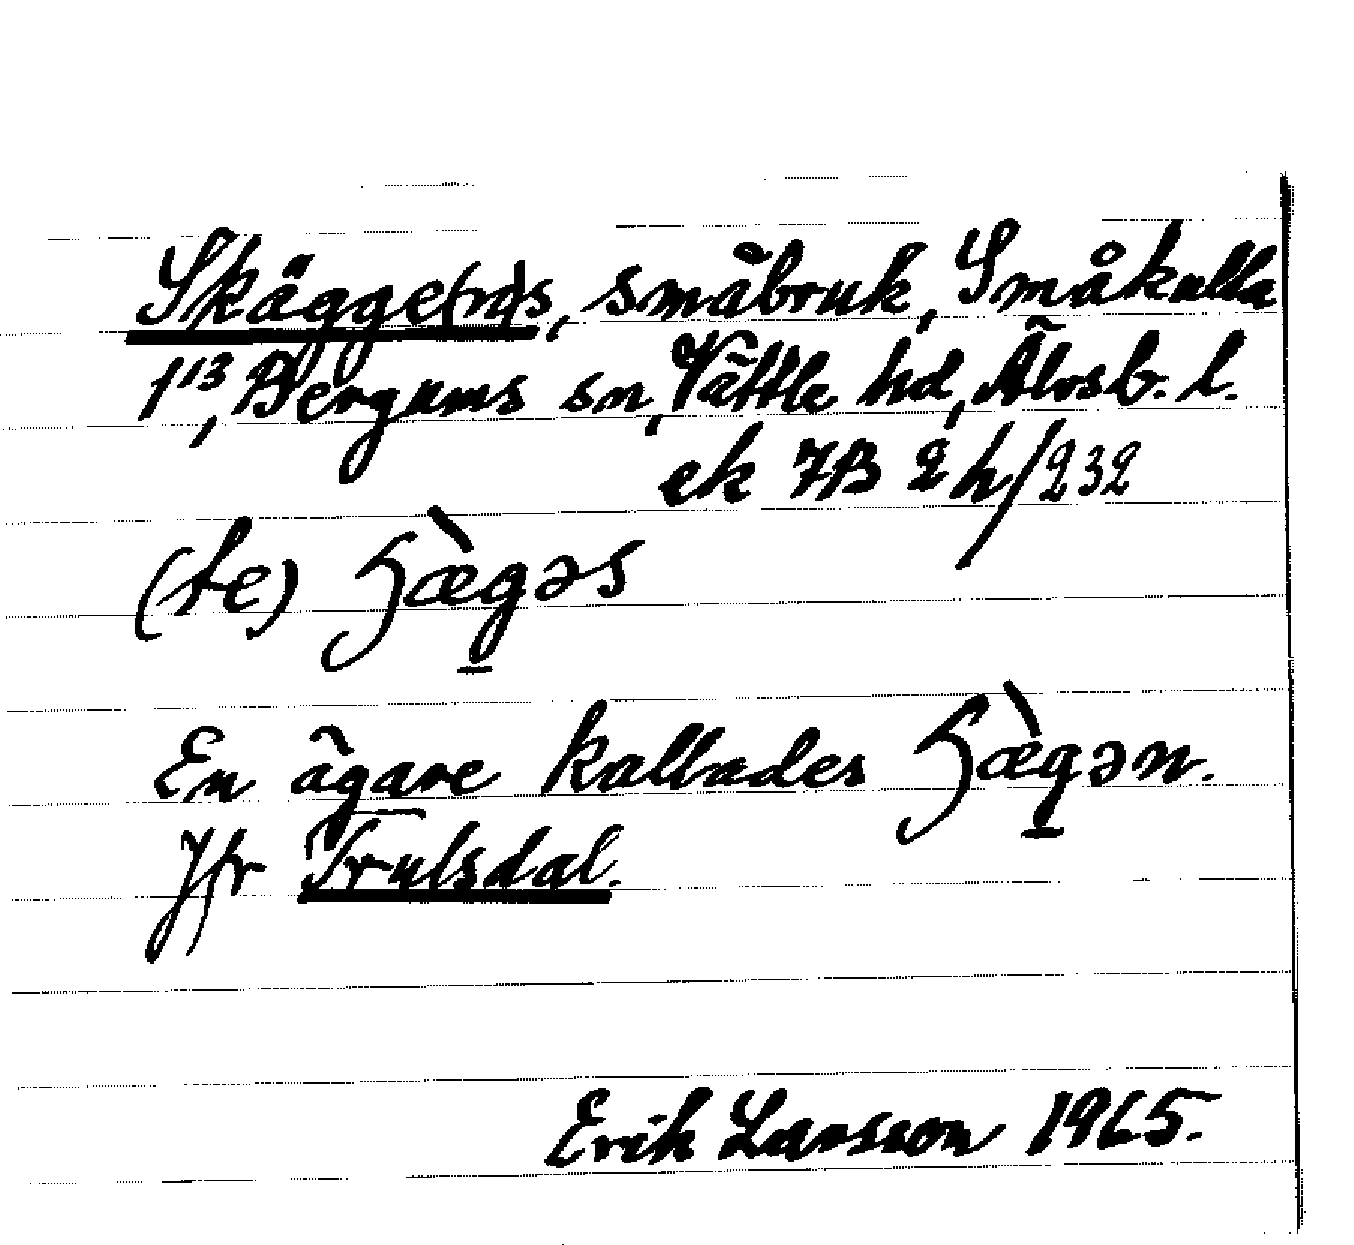 Skägge(n)s, småbruk, Småkulla
1¹³, Bergums sn, Vättle hd, Älvsb. l.
ek 7B 2h/232
(te) ʃæ̀g̲əs
En ägare kallades ʃæ̀g̲ən.
Jfr Trulsdal.
Erik Larsson 1965.